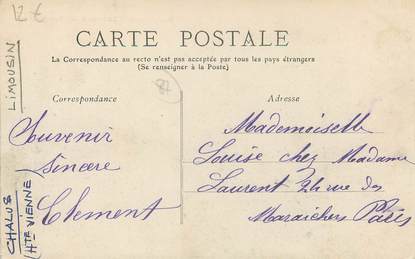 12 €
CARTE POSTALE
La Correspondance au recto n'est pas acceptée par tous les pays étrangers
(Se renseigner à la Poste)
Correspondance
87
Adresse
LIMOUSIN
CHALUS
(Hte VIENNE
Souvenir
Sincère
Clement
Mademoiselle
Louise chez Madame
Laurent 24 rue des
Maraichers Paris